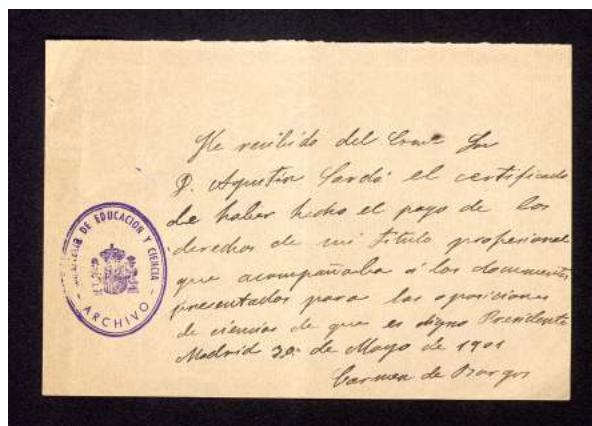 He recibido del Excmo Sr
D. Agustín Sardá el certificado
de haber hecho el pago de los
derechos de mi título profesional
que acompañaba á los documentos
presentados para las oposiciones
de ciencias de que es digno Presidente
Madrid 30 de Mayo de 1901
Carmen de Burgos
DE EDUCACION Y CIENCIA
ARCHIVO